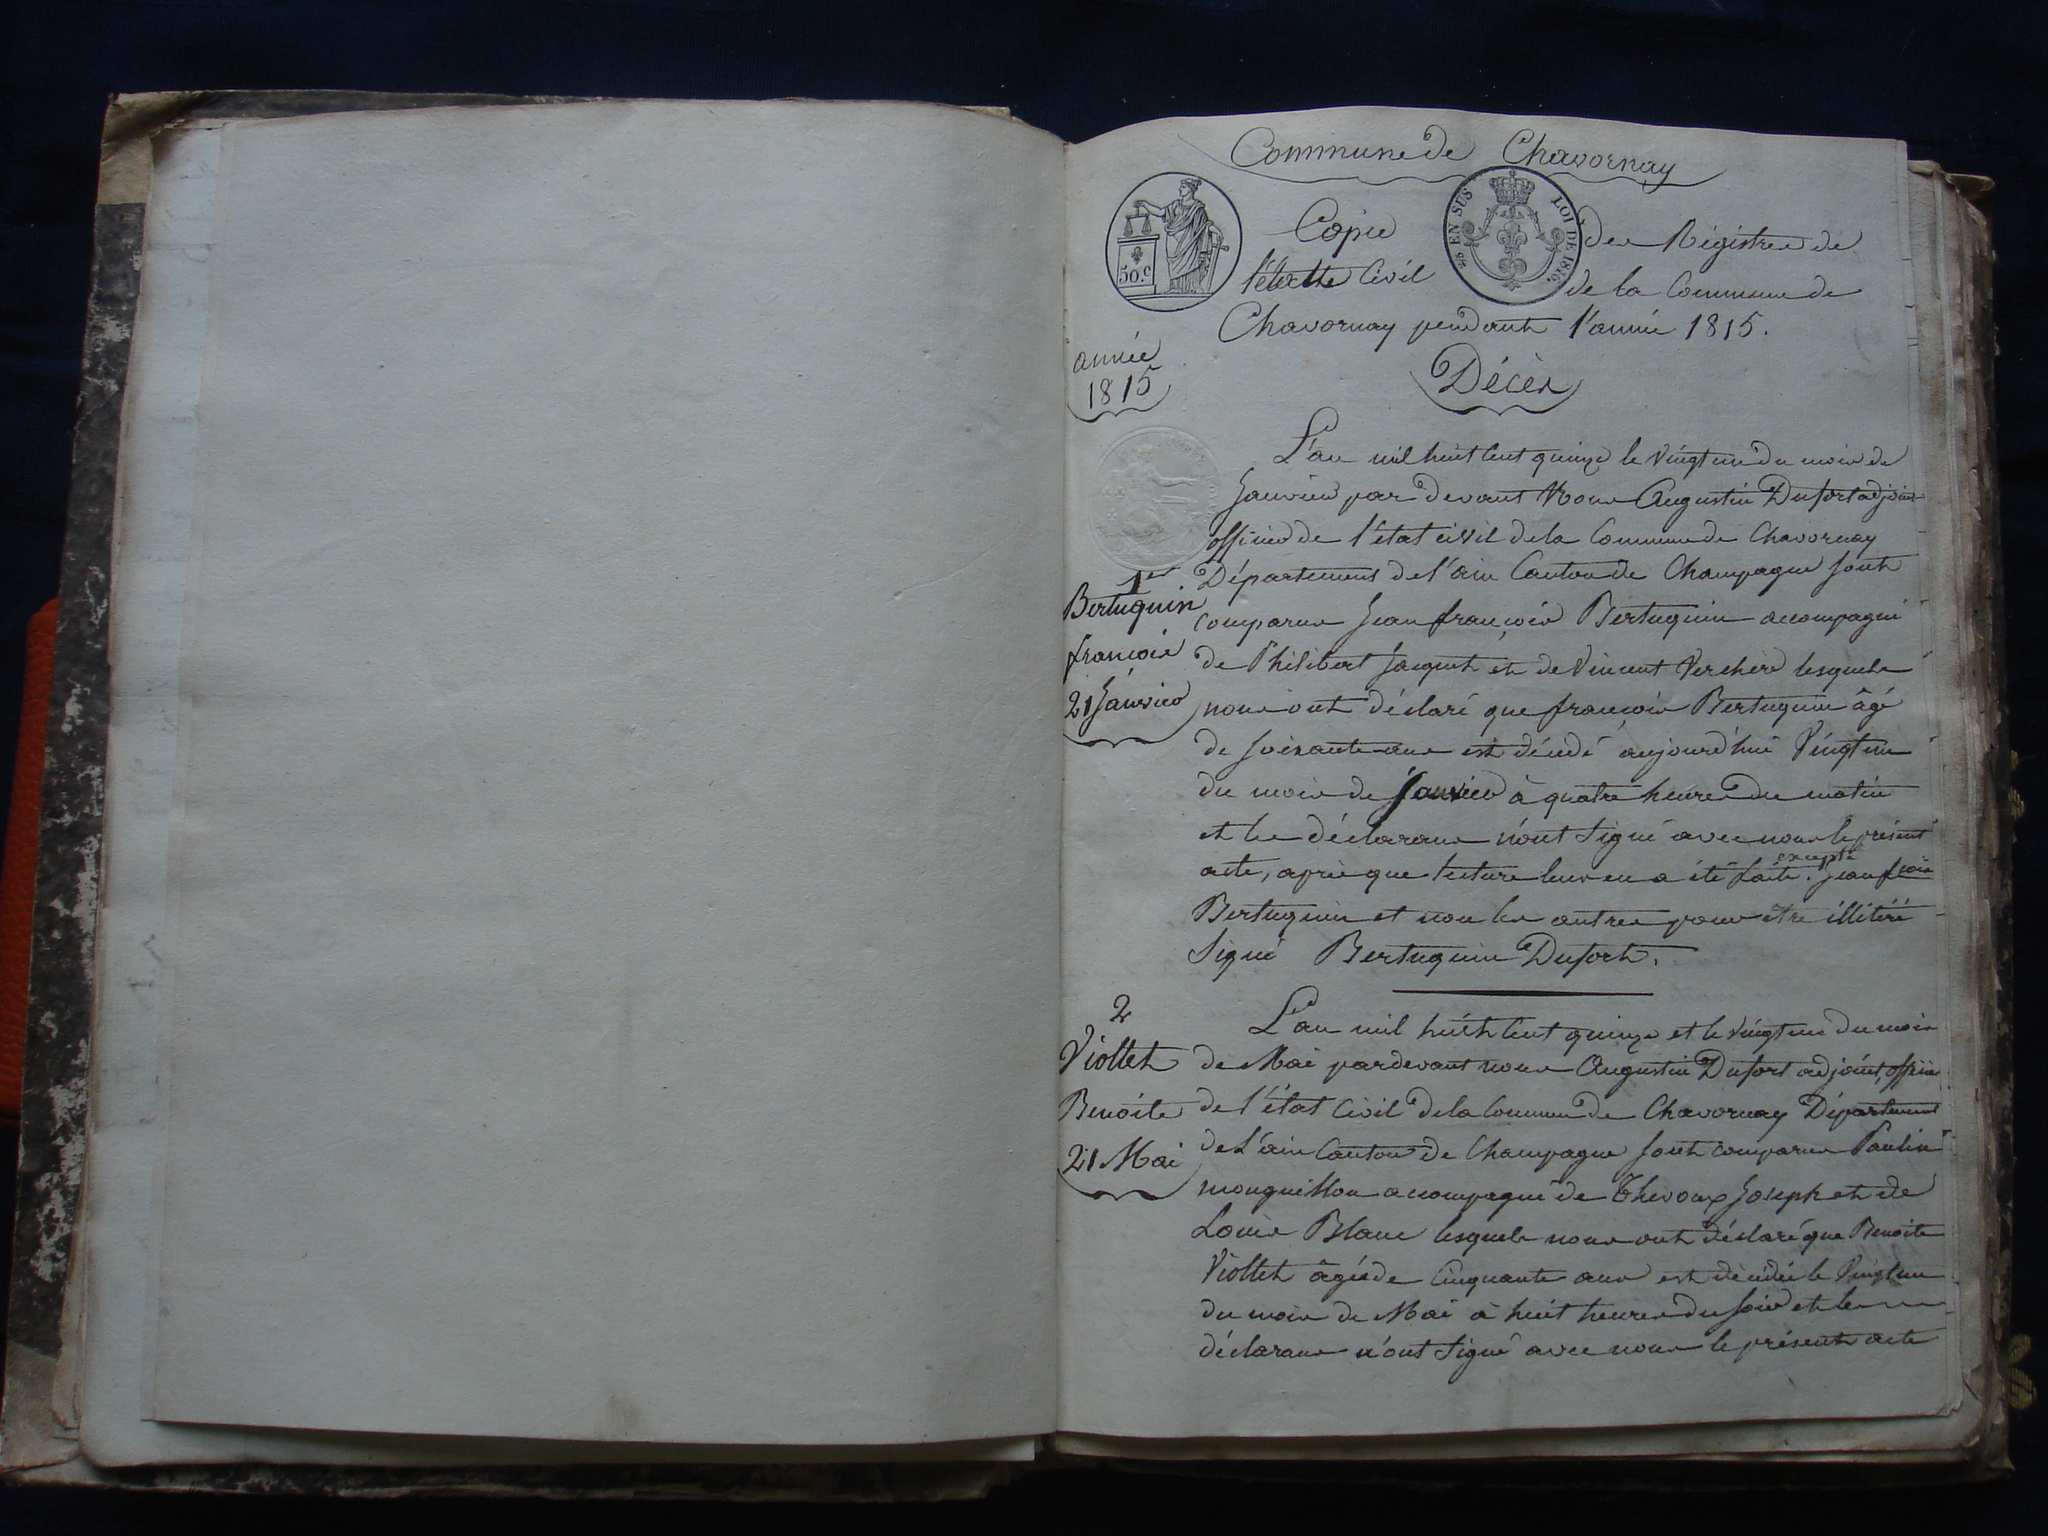 Commune de Chavornay
50.c
EN SUS LOI DE 1816
Copie des Registres de
l'étatte Civil de la Commune de
Chavornay pendant l'année 1815.
année
1815
Décès
1er
Bertuquin
françois
21 Janvier
L'an mil huit Cent quinze le vingt un du mois de
Janvier par devant Nous Augustin Dufort adjoint
officier de l'état civil de la Commune de Chavornay
Département de l'ain Canton de Champagne Sont
comparus Jean françois Bertuquin accompagné
de Philibert Jacquet et de Vincent Verchère lesquels
nous ont déclaré que françois Bertuquin âgé
de Soixante ans est décédé aujourd'hui Vingt un
du mois de Janvier à quatre heures du matin
et les déclarans n'ont Signé avec nous le présent
acte, après que lecture leur en a été faite. excepté Jean fçois
Bertuquin et non les autres pour être illitéré
Signé Bertuquin Dufort.
2
Viollet
Benoite
21 Mai
L'an mil huit Cent quinze et le vingt un du mois
de Mai pardevant nous Augustin Dufort adjoint, officier
de l'état Civil de la Commune de Chavornay Département
de L'ain Canton de Champagne Sont comparus Paulin
monguillon accompagné de Thevoux Joseph et de
Louis Blanc lesquels nous ont déclaré que Benoite
Viollet âgée de Cinquante ans est décédée le Vingt un
du mois de Mai à huit heures du Soir et les
déclarans n'ont Signé avec nous le présent acte